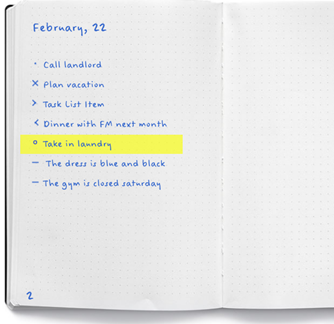 February, 22
· Call landlord
× Plan vacation
> Task List Item
< Dinner with FM next month
o Take in laundry
– The dress is blue and black
– The gym is closed saturday
2